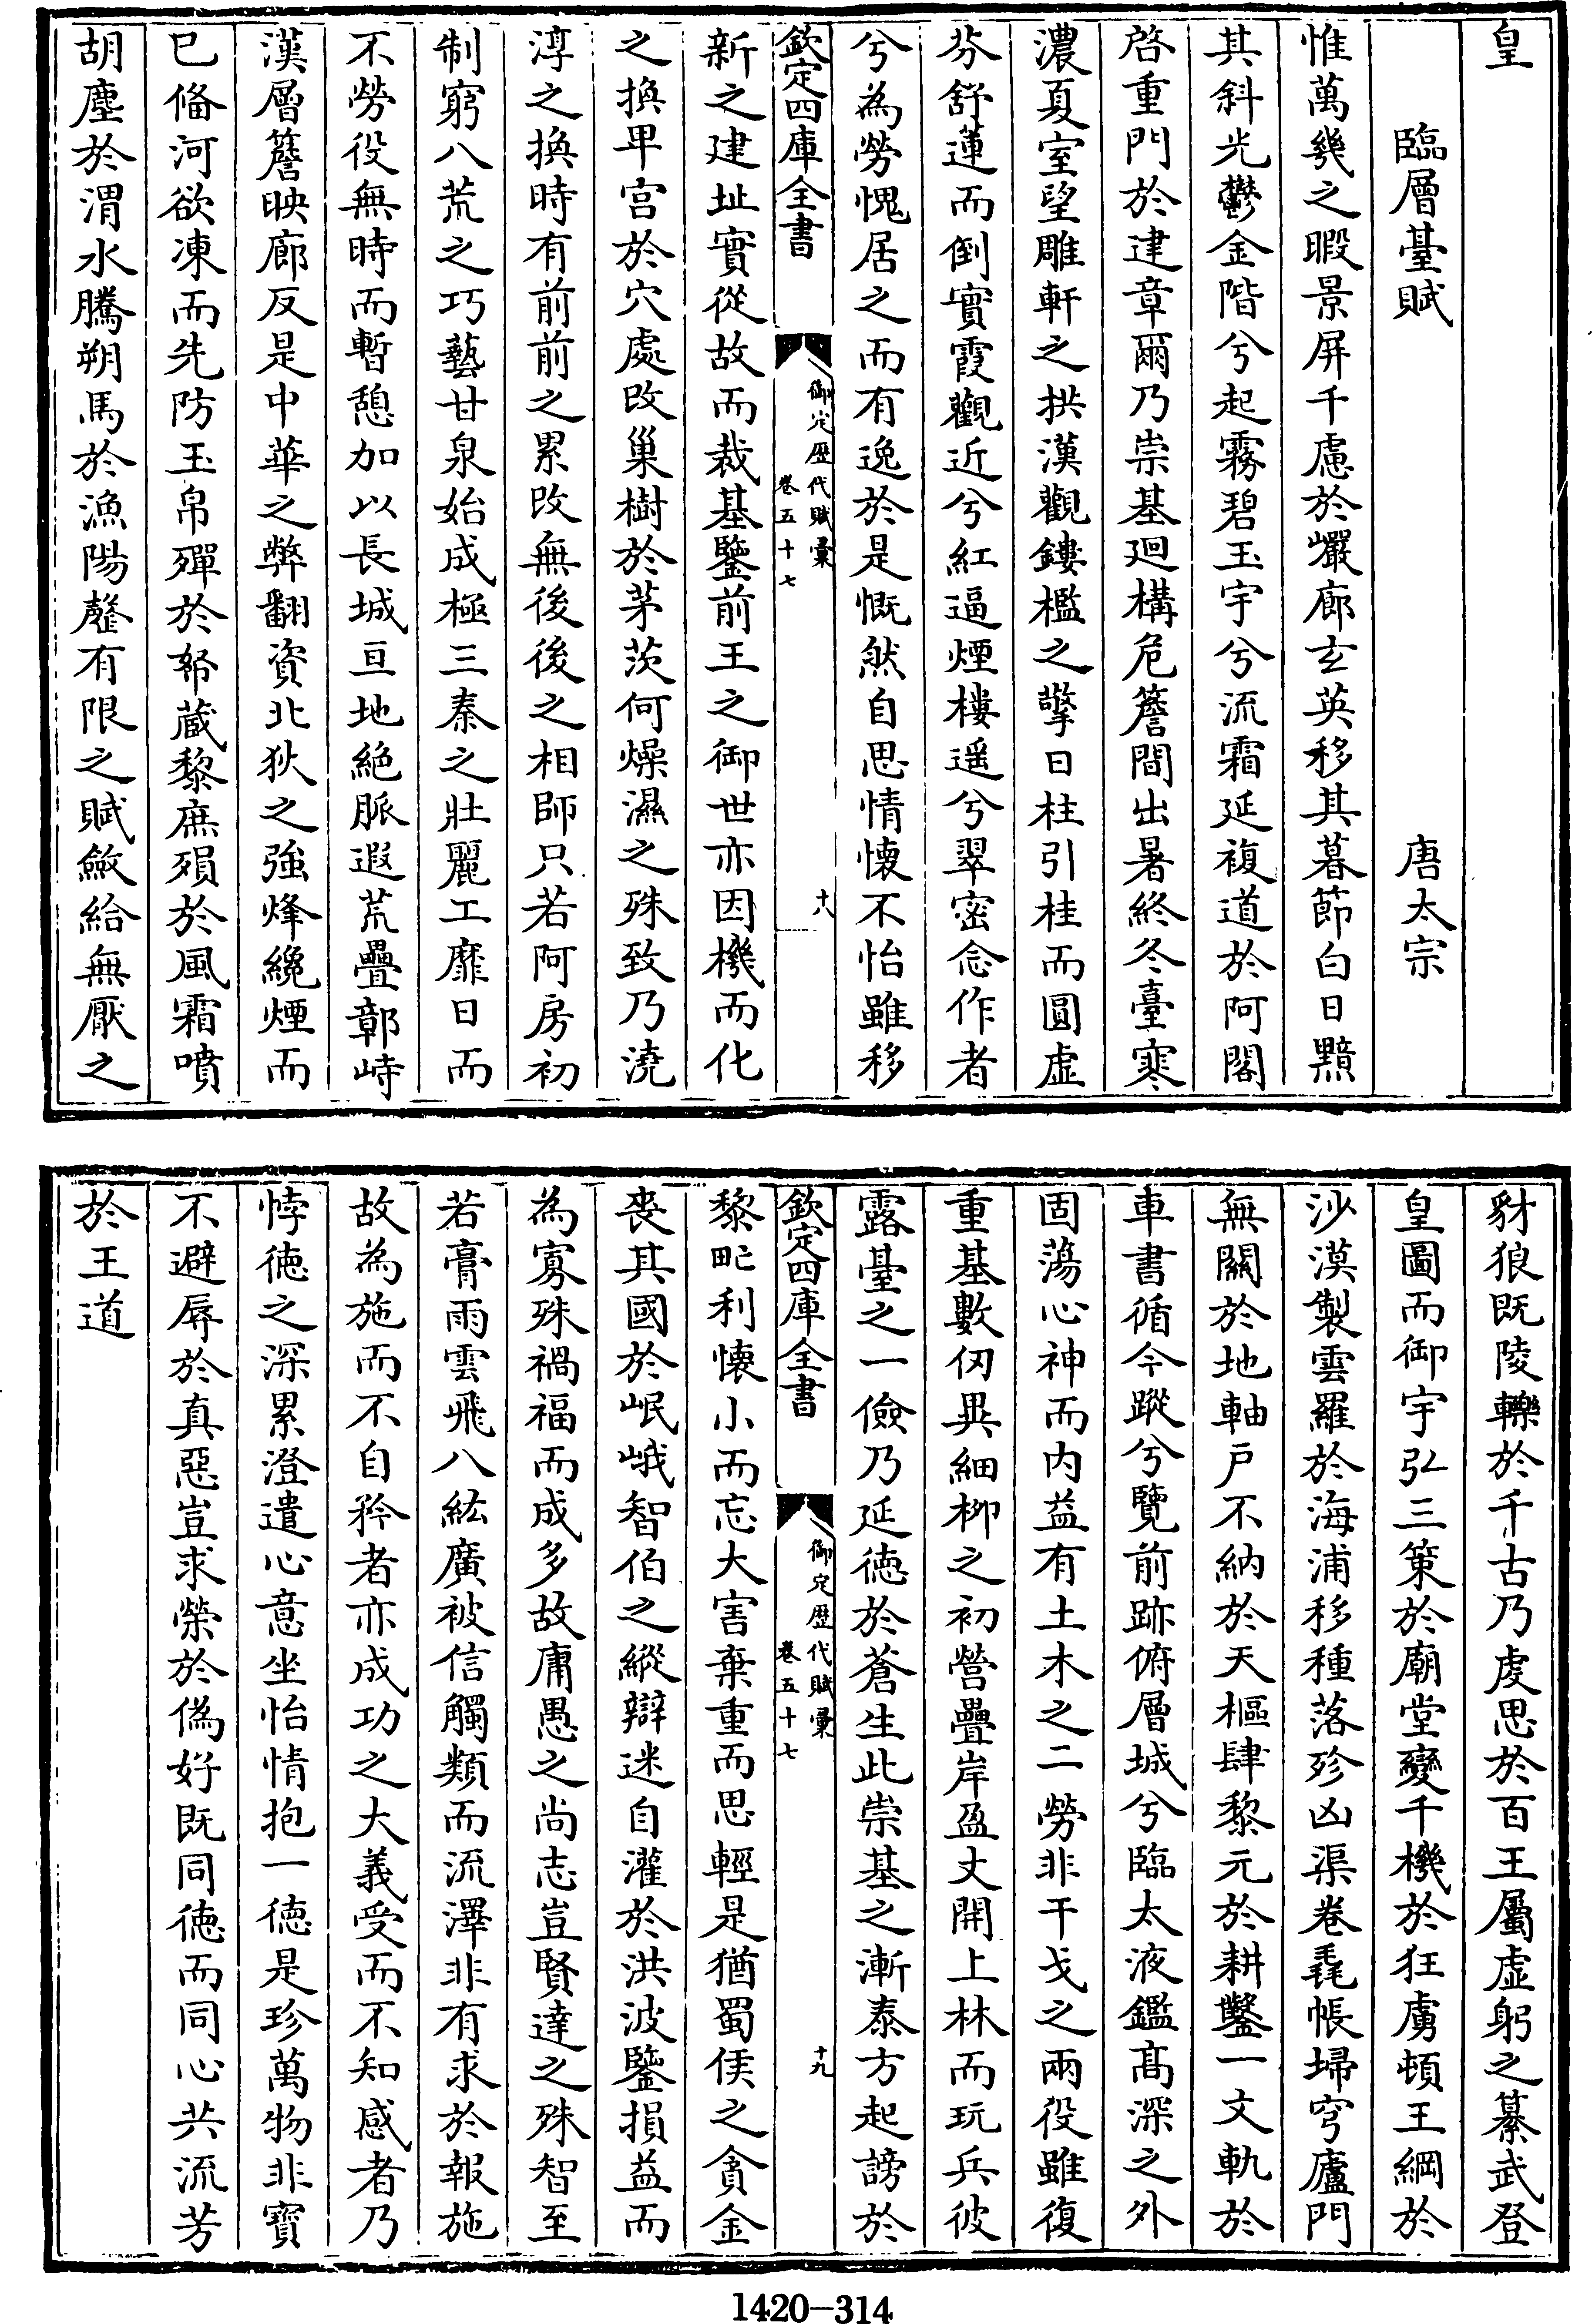 皇
臨層臺賦 唐太宗
惟萬㡬之暇景屏千慮於巖廊玄英移其暮節白日黯
其斜光鬱金階兮起霧碧玉宇兮流霜延複道於阿閣
啓重門於建章爾乃崇基迴構危簷間出暑終冬臺寒
濃夏室望雕軒之拱漢觀鏤檻之擎日柱引桂而圓虛
芬舒蓮而倒實霞觀近兮紅逼煙樓遥兮翠密念作者
兮為勞愧居之而有逸於是慨然自思情懷不怡雖移
欽定四庫全書 御定歴代賦彙 卷五十七 十八
新之建址實從故而裁基鑒前王之御世亦因機而化
之換卑宫於穴處改巢樹於茅茨何燥濕之殊致乃澆
淳之換時有前前之累改無後後之相師只若阿房初
制窮八荒之巧藝甘泉始成極三秦之壯麗工靡日而
不勞役無時而暫憩加以長城亘地絶脈遐荒疊鄣峙
漢層簷映廊反是中華之弊翻資北狄之強烽纔煙而
已偹河欲凍而先防玉帛殫於帑蔵黎庶殞於風霜噴
胡塵於渭水騰朔馬於漁陽罄有限之賦斂給無厭之
豺狼既陵轢於千古乃虔思於百王屬虛躬之纂武登
皇圖而御宇弘三策於廟堂變千機於狂虜頓王綱於
沙漠製雲羅於海浦移種落殄凶渠卷毳帳埽穹廬門
無關於地軸戸不納於天樞肆黎元於耕鑿一文軌於
車書循今蹤兮覽前跡俯層城兮臨太液鑑髙深之外
固蕩心神而内益有土木之二勞非干戈之兩役雖復
重基數仞異細栁之初營疊岸盈丈開上林而玩兵彼
露臺之一儉乃延徳於蒼生此崇基之漸泰方起謗於
欽定四庫全書 御定歴代賦彙 卷五十七 十九
黎甿利懷小而忘大害棄重而思輕是猶蜀侯之貪金
喪其國於岷峨智伯之縱辯迷自灌於洪波鑒損益而
為寡殊禍福而成多故庸愚之尚志豈賢達之殊智至
若膏雨雲飛八紘廣被信觸類而流澤非有求於報施
故為施而不自矜者亦成功之大義受而不知感者乃
悖徳之深累澄遣心意坐怡情抱一徳是珍萬物非寶
不避辱於真惡豈求榮於偽好既同徳而同心共流芳
於王道
1420-314